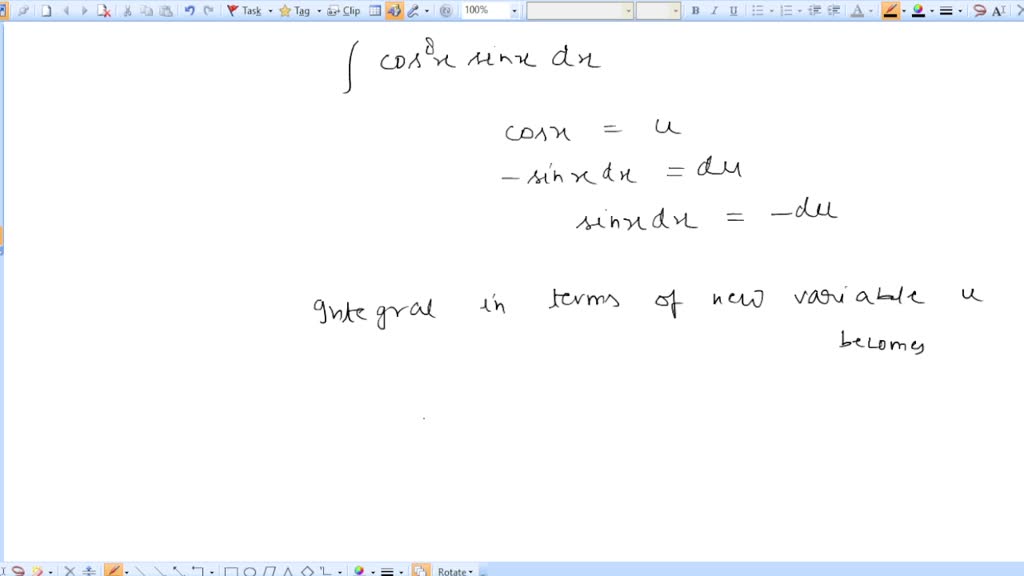 Task Tag Clip 100% B I U A A
∫ cos⁸x sinx dx
cosx = u
- sinx dx = du
sinx dx = -du
Integral in terms of new variable u
becomes
Rotate